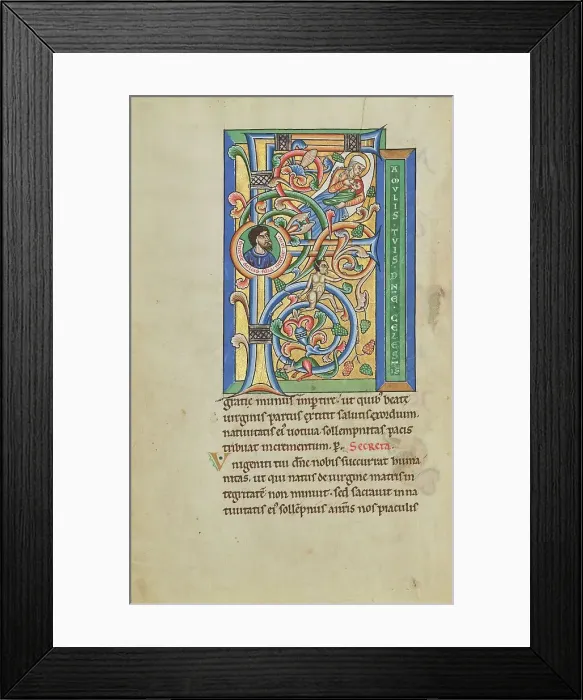 F
AMVLIS · TVIS · DNE · CELESTIS
gratie munus impertire · ut quib beate
virginis partus extitit salutis exordium ·
nativitatis ei votiva sollempnitas pacis
tribuat incrementum · P. Secreta ·
Vnigeniti tui dne nobis succurrat huma
nitas · ut qui natus de virgine matris in
tegritate non minuit · sed sacravit in na
tivitatis ei sollepniis nos piaculis